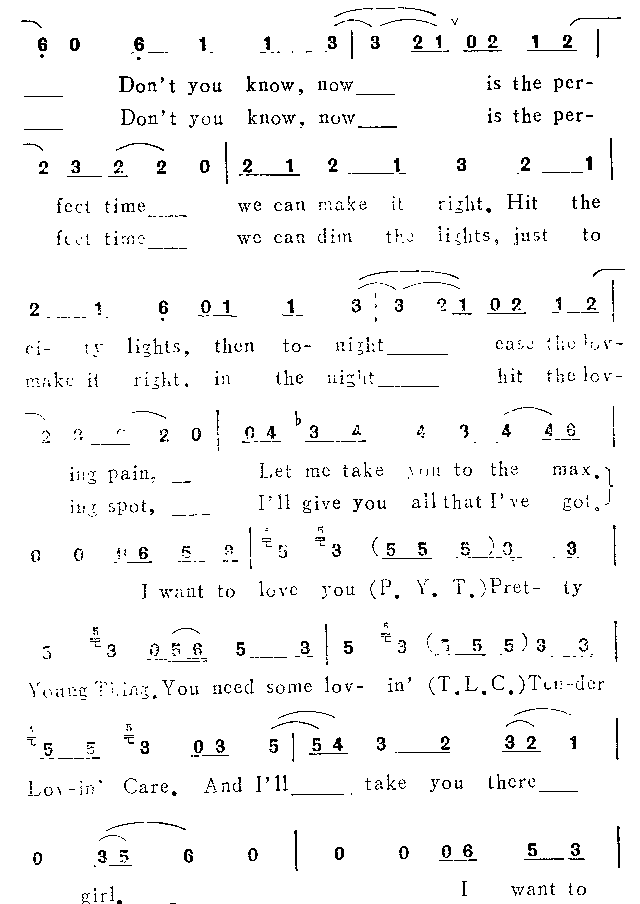 6 0 6 1 1 3 | 3 2 1 0 2 1 2 |
Don't you know, now___ is the per-
Don't you know, now___ is the per-
2 3 2 2 0 | 2 1 2 1 3 2 1 |
fect time___ we can make it right. Hit the
fect time___ we can dim the lights, just to
2 1 6 0 1 1 3 3 2 1 0 2 1 2 |
ci- ty lights, then to- night___ ease the lov-
make it right. in the night___ hit the lov-
2 2 0 | 0 4 b3 4 4 3 4 4 6 |
ing pain, __ Let me take you to the max.
ing spot, ___ I'll give you all that I've got.
0 0 6 5 | 5 5 3 (5 5 5) 3 3 |
I want to love you (P. Y. T.)Pret- ty
5 3 0 5 6 5 3 | 5 5 3 (5 5 5) 3 3 |
Young Thing. You need some lov- in' (T.L.C.)Ten-der
5 5 5 3 0 3 5 | 5 4 3 2 3 2 1 |
Lov-in' Care. And I'll___ take you there___
0 3 5 6 0 | 0 0 0 6 5 3 |
girl. _ I want to